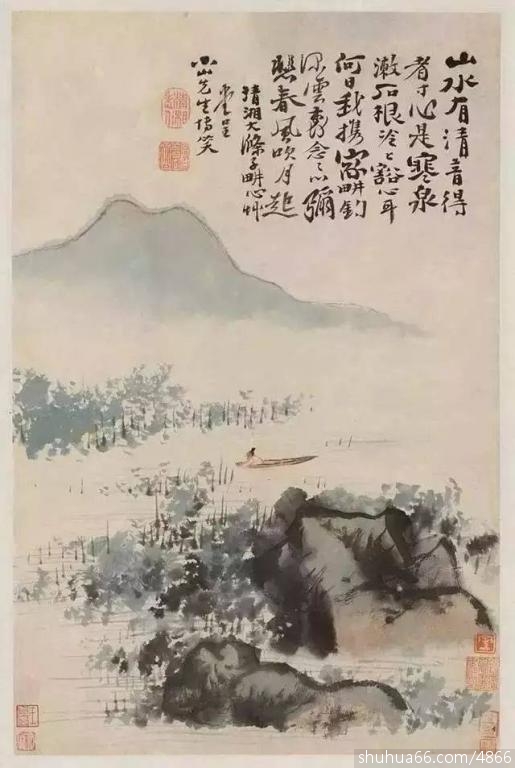 山水有清音得
者寸心是寒泉
漱石根冷〻豁心耳
何日我携家畊釣
深雲裏念之心彌
春風吹月起
清湘大滌子畊心艸
堂呈
小山先生博笑
shuhua66.com/4866